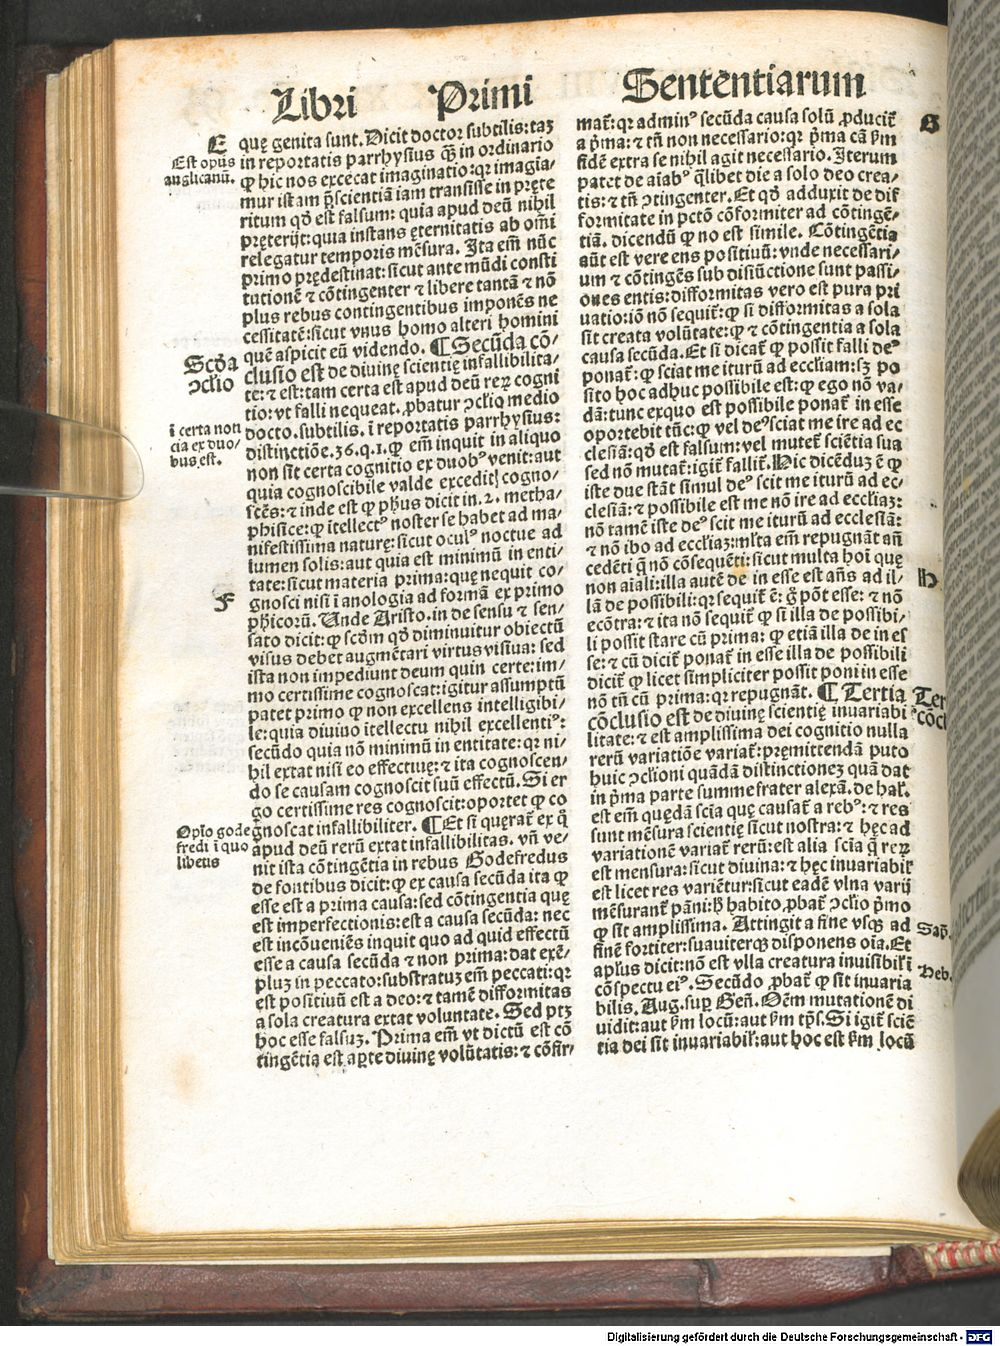 Libri Primi Sententiarum
E
Est opus
anglicanũ.
quę genita sunt. Dicit doctor subtilis: taꝫ
in reportatis parrhysius q̃ꝫ in ordinario
ꝙ hic nos excecat imaginatio: qꝛ imagia⸗
mur istam p̃scientiã iam transisse in pręte
ritum qḋ est falsum: quia apud deũ nihil
pręterijt: quia instans ęternitatis ab om̃i
relegatur temporis mẽsura. Ita em̃ nũc
primo prędestinat: sicut ante mũdi consti
tutionẽ ⁊ cõtingenter ⁊ libere tantã ⁊ nõ
plus rebus contingentibus imponẽs ne
cessitatẽ: sicut vnus homo alteri homini
quẽ aspicit eũ videndo. ¶ Secũda cõ⸗
Scḋa
ↄclío
clusio est de divinę scientię infallibilita⸗
te: ⁊ est: tam certa est apud deũ reꝝ cogni
tio: vt falli nequeat. ꝓbatur ↄclío medio
ĩ certa noti
cia ex duo⸗
bus est.
docto. subtilis. ĩ reportatis parrhysius:
distinctiõe. 36. q. 1. ꝙ em̃ inquit in aliquo
non sit certa cognitio ex duobꝰ venit: aut
quia cognoscibile valde excedit cogno⸗
scẽs: ⁊ inde est ꝙ ph̃us dicit in. 2. metha⸗
phisice: ꝙ ĩtellectꝰ noster se habet ad ma⸗
nifestissima naturę: sicut oculꝰ noctue ad
lumen solis: aut quia est minimũ in enti⸗
tate: sicut materia prima: quę nequit co⸗
F
gnosci nisi ĩ anologia ad formã ex primo
phicorũ. Unde Aristo. in de sensu ⁊ sen⸗
sato dicit: ꝙ scḋm qḋ diminuitur obiectũ
visus debet augmẽtari virtus visiua: sed
ista non impediunt deum quin certe: im⸗
mo certissime cognoscat: igitur assumptũ
patet primo ꝙ non excellens intelligibi⸗
le: quia diuino ĩtellectu nihil excellentiꝰ:
secũdo quia nõ minimũ in entitate: qꝛ ni⸗
hil extat nisi eo effectiuę: ⁊ ita cognoscen⸗
do se causam cognoscit suũ effectũ. Si er
go certissime res cognoscit: oportet ꝙ co
Opío gode
fredi ĩ quo
libetis
gnoscat infallibiliter. ¶ Et si quęrat̃ ex q̊
apud deũ rerũ extat infallibilitas. vñ ve⸗
nit ista cõtingẽtia in rebus Godefredus
de fontibus dicit: ꝙ ex causa secũda ita ꝙ
esse est a prima causa: sed cõtingentia quę
est imperfectionis: est a causa secũda: nec
est incõueniẽs inquit quo ad quid effectũ
esse a causa secũda ⁊ non prima: dat exẽ⸗
pluꝫ in peccato: substratuꝫ em̃ peccati: qꝛ
est positiuũ est a deo: ⁊ tamẽ difformitas
a sola creatura extat voluntate. Sed ptꝫ
hoc esse falsuꝫ. Prima em̃ vt dictũ est cõ
tingẽtia est aꝑte divinę volũtatis: ⁊ cõfir⸗
mat̃: qꝛ adminꝰ secũda causa solũ ꝓducit̃
G
a p̃ma: ⁊ tñ non necessario: qꝛ p̃ma cã ẜm
fidẽ extra se nihil agit necessario. Iterum
patet de aiab̃ꝰ q̃libet die a solo deo crea⸗
tis: ⁊ tñ ↄtingenter. Et qḋ adduxit de dif
formitate in pctõ cõformiter ad cõtingẽ⸗
tiã. dicendũ ꝙ no est simile. Cõtingẽtia
aũt est vere ens positiuũ: vnde necessari⸗
um ⁊ cõtingẽs sub disiũctione sunt passi⸗
ones entis: difformitas vero est pura pri
uatio: iõ nõ sequit̃: ꝙ si difformitas a sola
sit creata volũtate: ꝙ ⁊ cõtingentia a sola
causa secũda. Et si dicat̃ ꝙ possit falli deꝰ
ponat̃: ꝙ sciat me iturũ ad eccľiam: sꝫ po
sito hoc adhuc possibile est: ꝙ ego nõ va⸗
dã: tunc exquo est possibile ponat̃ in esse
oportebit tũc: ꝙ vel deꝰ sciat me ire ad ec
clesiã: qḋ est falsum: vel mutet̃ sciẽtia sua
sed nõ mutat̃: igit̃ fallit̃. Hic dicẽduꝫ ẽ ꝙ
iste due stãt simul deꝰ scit me iturũ ad ec⸗
clesiã: ⁊ possibile est me nõ ire ad eccľiaꝫ:
nõ tamẽ iste deꝰ scit me iturũ ad ecclesiã:
⁊ nõ ibo ad eccľiaꝫ: mľta em̃ repugnãt añ
cedẽti q̃ nõ cõsequẽti: sicut multa hoĩ quę
H
non aiali: illa autẽ de in esse est añs ad il⸗
lã de possibili: qꝛ sequit̃ ẽ: g̊ põt esse: ⁊ nõ
ecõtra: ⁊ ita nõ sequit̃ ꝙ si illa de possibi⸗
li possit stare cũ prima: ꝙ etiã illa de in es
se: ⁊ cũ dicit̃ ponat̃ in esse illa de possibili
dicit̃ ꝙ licet simpliciter possit poni in esse
nõ tñ cũ prima: qꝛ repugnãt. ¶ Tertia
Ter
cõcl
cõclusio est de divinę scientię invariabi
litate: ⁊ est amplissima dei cognitio nulla
rerũ variatiõe variat̃: pręmittendã puto
huic ↄclioni quãdã distinctioneꝫ quã dat
in p̃ma parte summe frater alexã. de hal̃.
est em̃ quędã scĩa quę causat̃ a rebꝰ: ⁊ res
sunt mẽsura scientię sicut nostra: ⁊ hęc ad
variationẽ variat̃ rerũ: est alia scĩa q̃ reꝝ
est mensura: sicut divina: ⁊ hęc invariabil̃
est licet res variẽtur: sicut eadẽ vlna varij
mẽsurant̃ pãni: h̊ habito ꝓbat̃ ↄclío p̃mo
ꝙ sit amplissima. Attingit a fine vsqꝫ ad
Sap̃.
finẽ fortiter: suauiterqꝫ disponens oĩa. Et
apľus dicit: nõ est vlla creatura invisibil̃ ĩ
Heb.
cõspectu eiꝰ. Secũdo ꝓbat̃ ꝙ sit invaria
bilis. Aug. suꝑ Geñ. Oẽm mutationẽ di
uidit: aut ẜm locũ: aut ẜm tp̃s. Si igit̃ sciẽ
tia dei sit invariabil̃: aut hoc est ẜm locũ
Digitalisierung gefördert durch die Deutsche Forschungsgemeinschaft - DFG